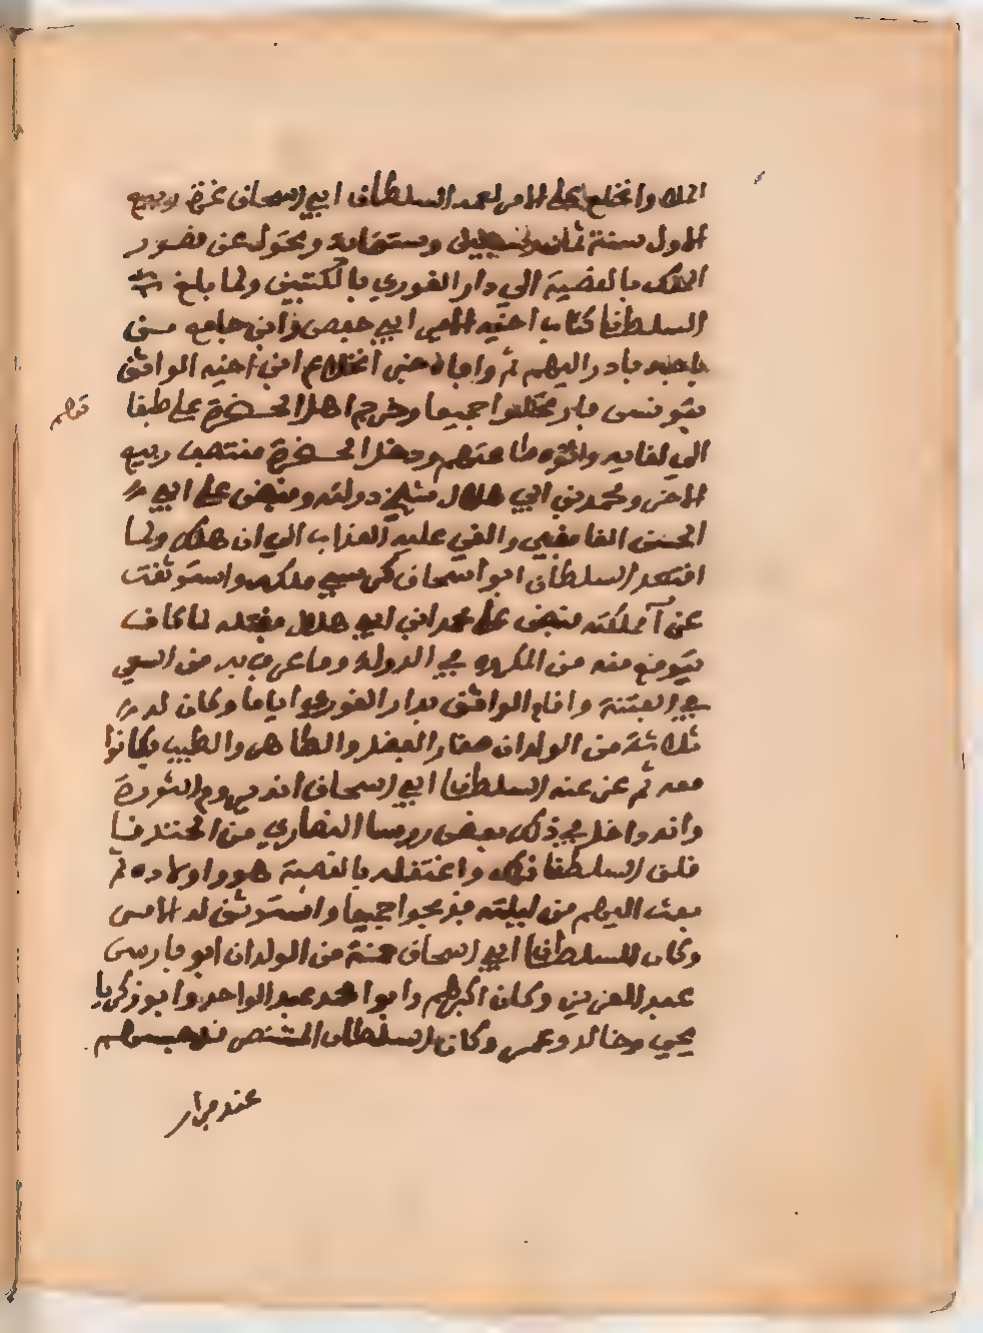 الملك وانخلع على الامر لعمه السلطان ابي اسحاق غرة ربيع
الاول سنة ثمان وسبعين وستمائة وتحول عن قصور
الملك بالقصبة الى دار الغوري بالكتبيين ولما بلغ
السلطان كتاب اخيه الامير ابي حفص وابن جامع من
بادر اليهم ثم وافاه خبر انخلاع ابن اخيه الواثق
بتونس فارتحلوا جميعا وخرج اهل الحضرة على طبقاتهم
الى لقايه واتوه طاعتهم ودخل الحضرة منتصف ربيع
الاخر ومحمد بن ابي هلال شيخ دولته وقبض على ابي
الحسن الغافقي والقي عليه العذاب الى ان هلك ولما
اقتعد السلطان ابو اسحاق كرسي ملكه واستوثقت
عرى مملكته قبض على محمد ابن ابي هلال فقتله لما كان
يتوقع منه من المكروه في الدولة وما عرف به من السعي
في الفتنة واقام الواثق بدار الغوري اياما وكان له
ثلاثة من الولدان صغار الفضل والطاهر والطيب فكانوا
معه ثم عن عنه السلطان ابي اسحاق انه يروم الثورة
وانه داخل في ذلك بعض روسا النصارى من الجند
فلق السلطان واعتقله بالقصبة هو واولاده ثم
بعث اليهم من ليلته فذبحوا جميعا واستوثق له الامر
وكان للسلطان ابي اسحاق خمسة من الولدان ابو فارس
عبد العزيز وكان اكبرهم وابو محمد عبد الواحد وابو زكريا
يحيى وخالد وعمر وكان السلطان المستنصر قد حبسهم
عند فرار